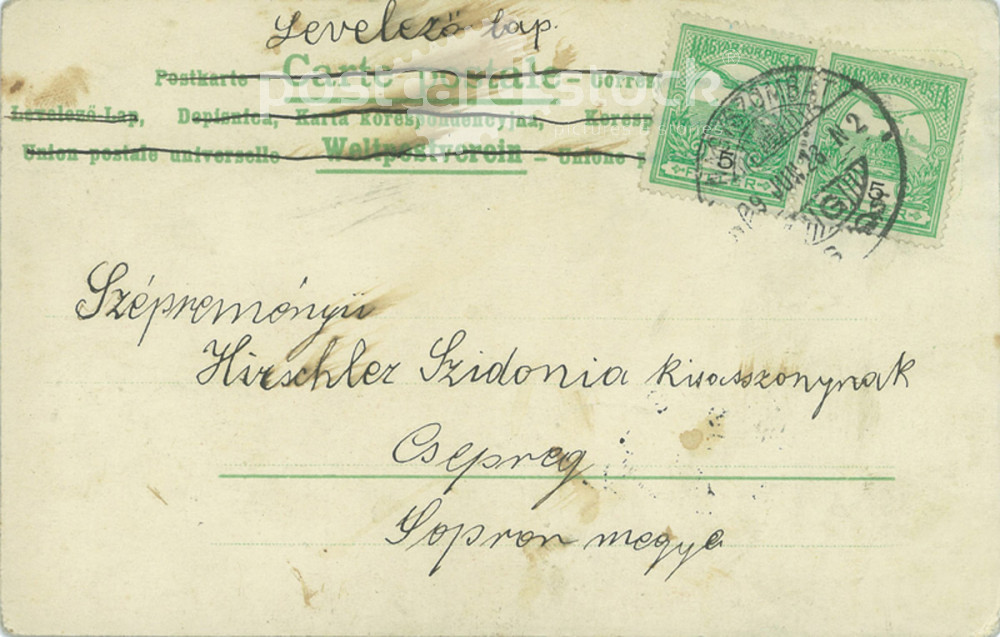 Levelező lap.
Postkarte Carte postale Corres
Levelező-Lap, Dopisnica, Karta korespondencyjna, Keresp
Union postale universelle Weltpostverein – Unione
post art stock
pictures
MAGYAR KIR. POSTA
MAGYAR KIR. POSTA
5
FILLÉR
5
SZOMBAT
909 JUN. 28 N 2
Szépreményű
Hirschler Szidonia kisasszonynak
Csepreg
Sopron megye